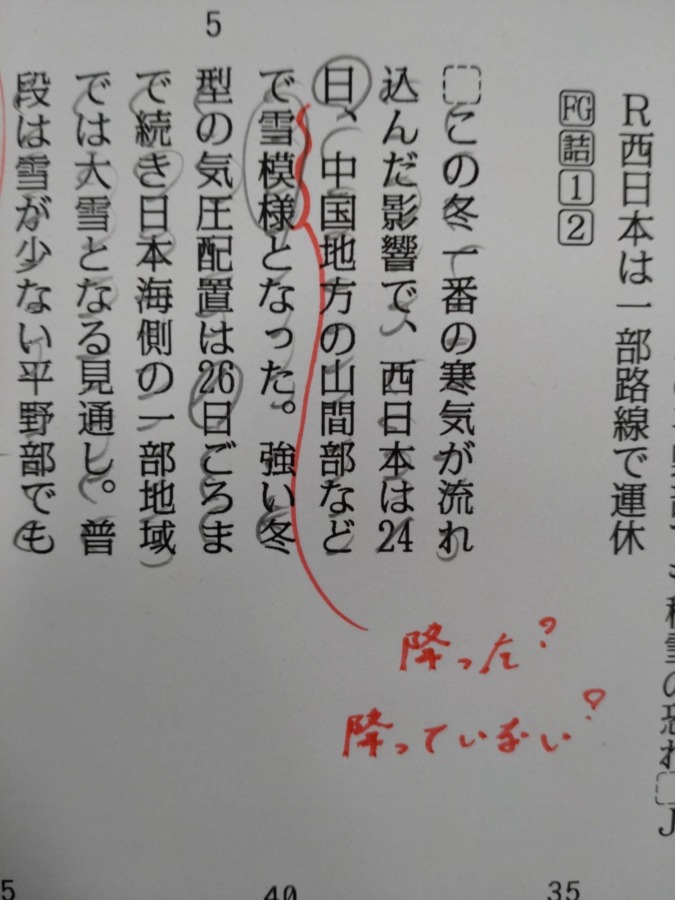 積雪の恐れ J
R西日本は一部路線で運休
FG 詰 1 2
この冬一番の寒気が流れ
込んだ影響で、西日本は24
日、中国地方の山間部など
で雪模様となった。強い冬
型の気圧配置は26日ごろま
で続き日本海側の一部地域
では大雪となる見通し。普
段は雪が少ない平野部でも
降った?
降っていない?
5
35
40
5